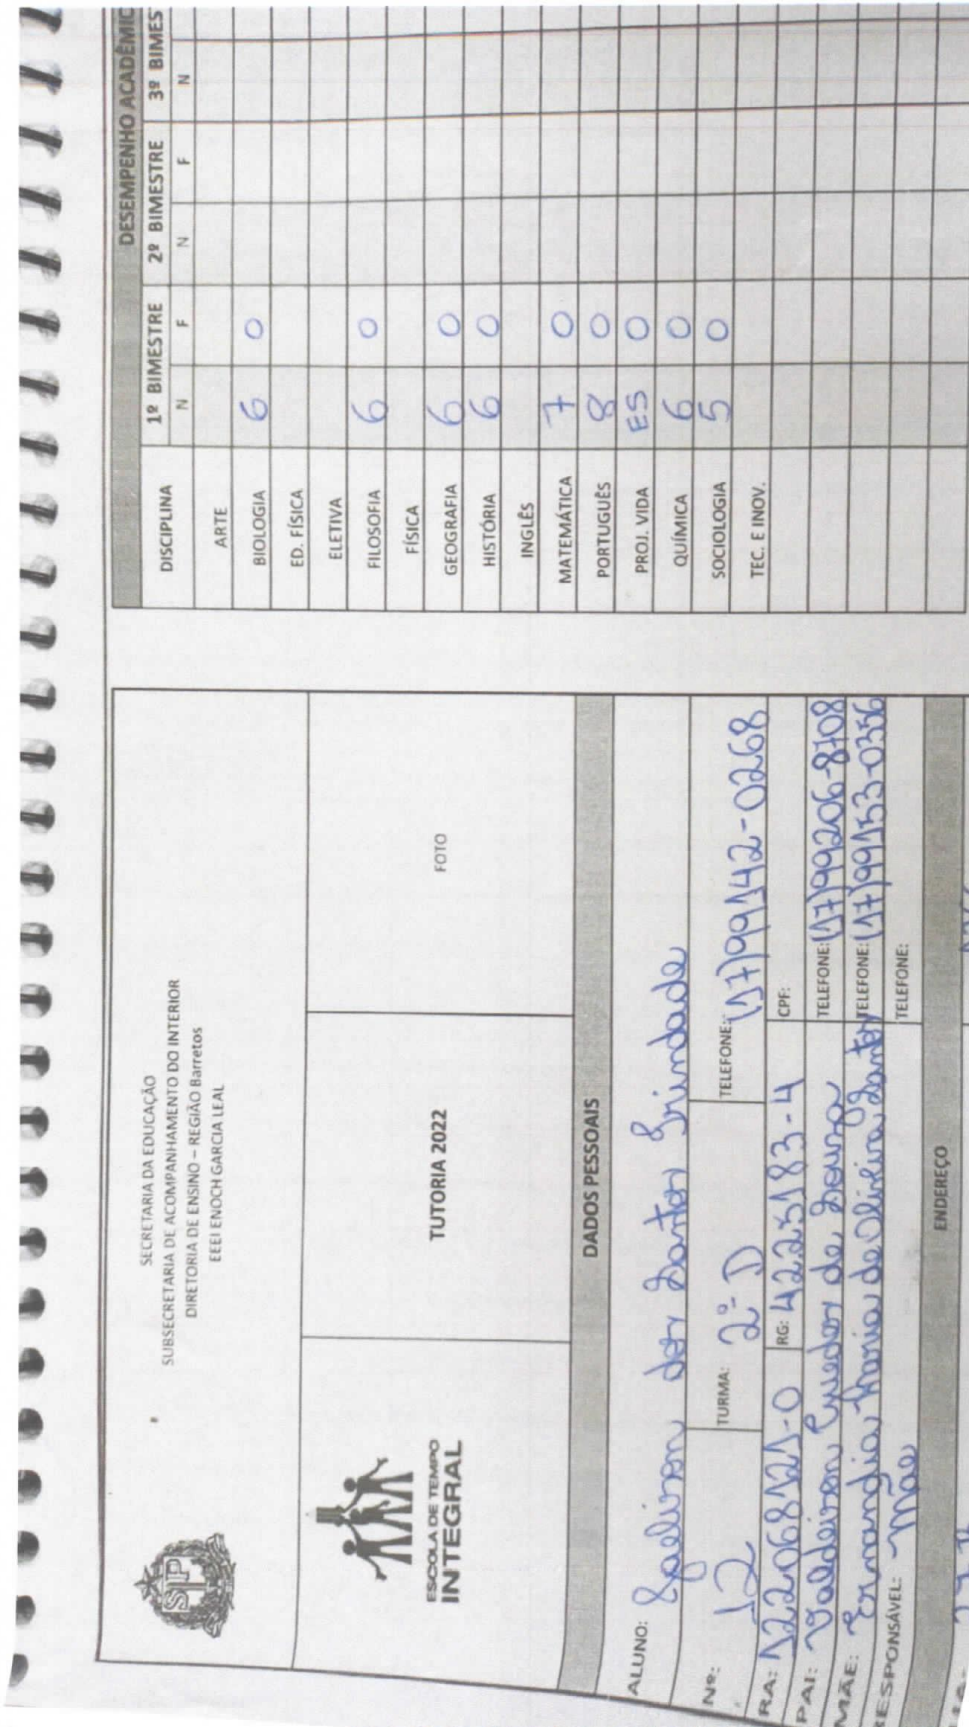 SECRETARIA DA EDUCAÇÃO
SUBSECRETARIA DE ACOMPANHAMENTO DO INTERIOR
DIRETORIA DE ENSINO – REGIÃO Barretos
EEEI ENOCH GARCIA LEAL
SP
ESCOLA DE TEMPO
INTEGRAL
TUTORIA 2022
FOTO
DADOS PESSOAIS
ALUNO: dos Santos Trindade
Nº: 12 TURMA: 2º D TELEFONE: (17)99142-0268
RA: 122068121-0 RG: 42225183-4 CPF:
PAI: Valdeison Guedes de Souza TELEFONE: (17)99206-8708
MÃE: Maria de Oliveira Santos TELEFONE: (17)99153-0356
ESPONSÁVEL: Mãe TELEFONE:
ENDEREÇO
DESEMPENHO ACADÊMIC
DISCIPLINA 1º BIMESTRE 2º BIMESTRE 3º BIMES
N F N F N
ARTE
BIOLOGIA 6 0
ED. FÍSICA
ELETIVA
FILOSOFIA 6 0
FÍSICA
GEOGRAFIA 6 0
HISTÓRIA 6 0
INGLÊS
MATEMÁTICA 7 0
PORTUGUÊS 8 0
PROJ. VIDA ES 0
QUÍMICA 6 0
SOCIOLOGIA 5 0
TEC. E INOV.